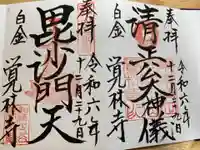 奉拝
令和六年
十二月二十九日
清正公大神儀
白金
覚林寺
奉拝
令和六年
十二月二十九日
毘沙門天
白金
覚林寺